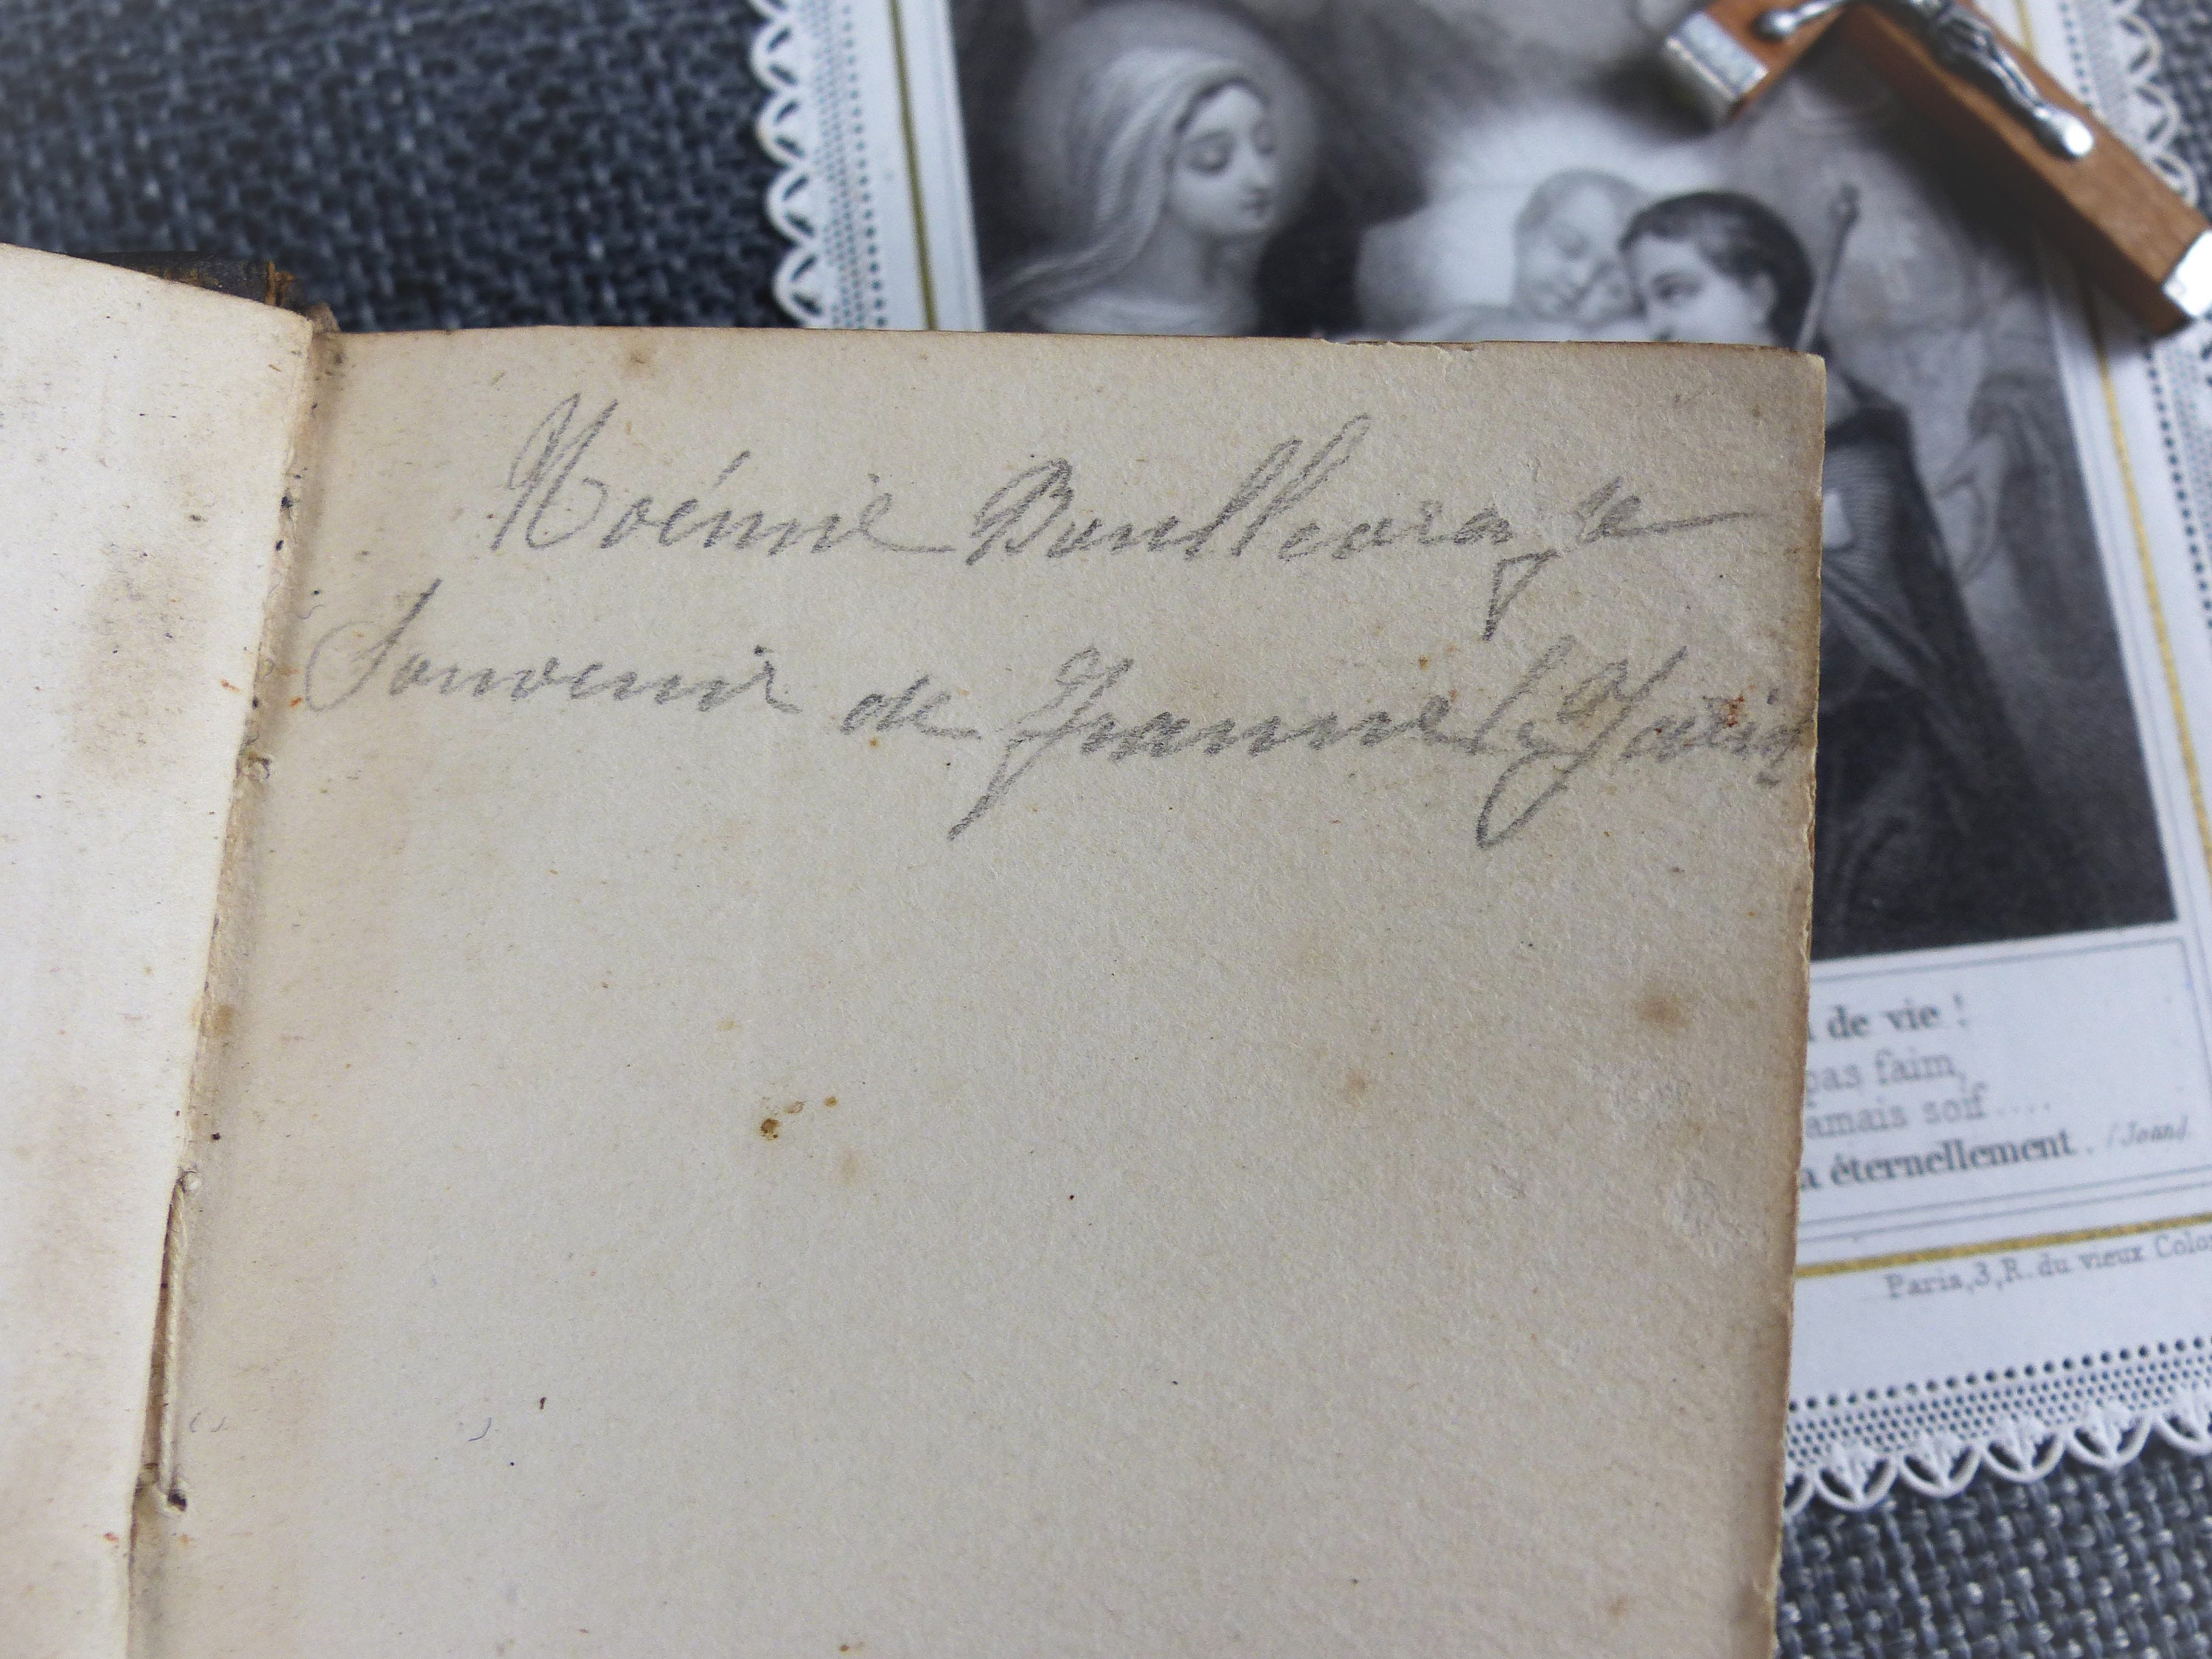 Noémie
Souvenir de Jeanne
de vie !
pas faim,
amais soif ....
a éternellement. (Joan)
Paris, 3, R. du vieux Colo